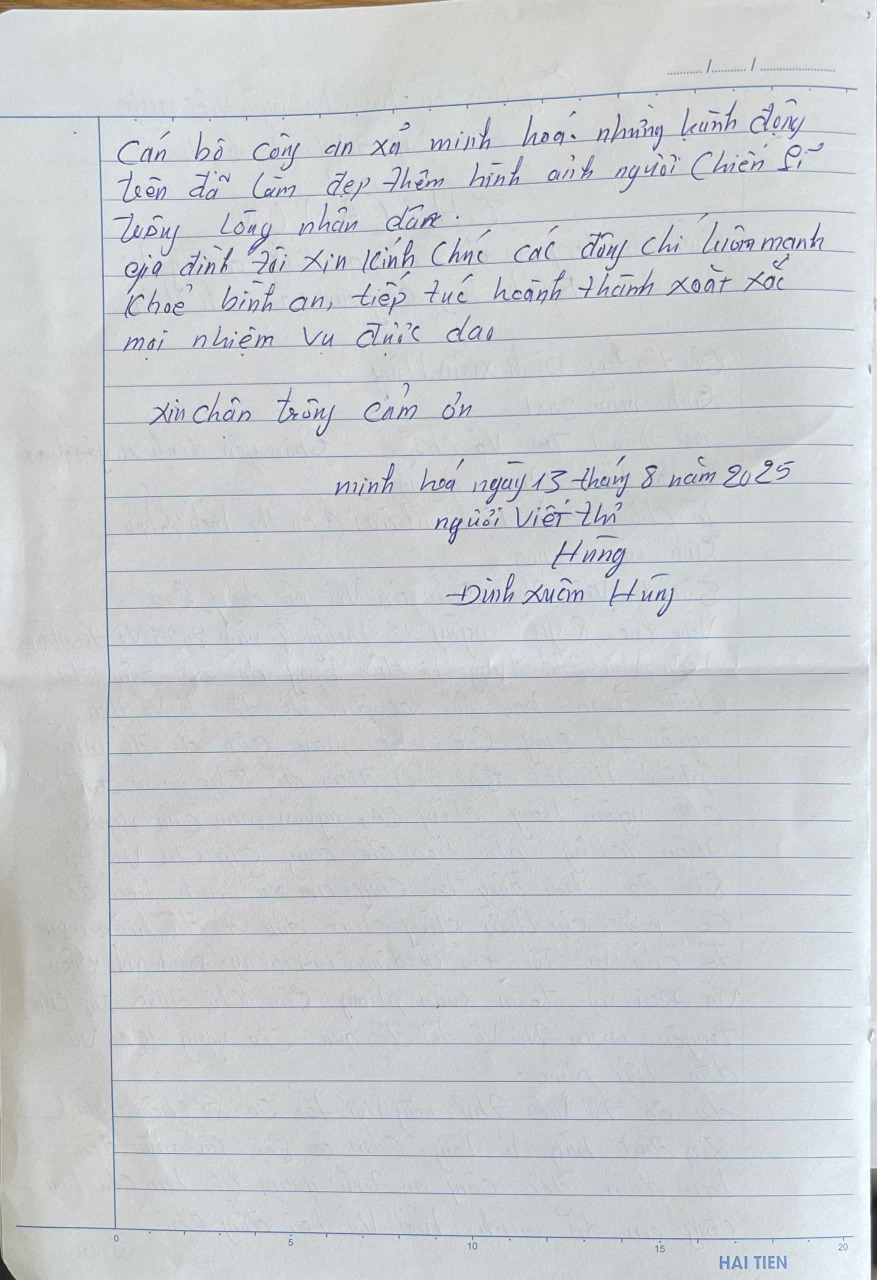 ....../....../............
Cán bộ công an xã minh hoá. những hành động
trên đã làm đẹp thêm hình ảnh người Chiến sĩ
trong lòng nhân dân.
gia đình tôi xin kính chúc các đồng chí luôn mạnh
khoẻ bình an, tiếp tục hoành thành xoất xắc
mọi nhiệm vụ được dao
xin chân trông cảm ơn
minh hoá ngày 13 tháng 8 năm 2025
người viết thư
Hùng
Đinh xuân Hùng
0 5 10 15 20
HAI TIEN